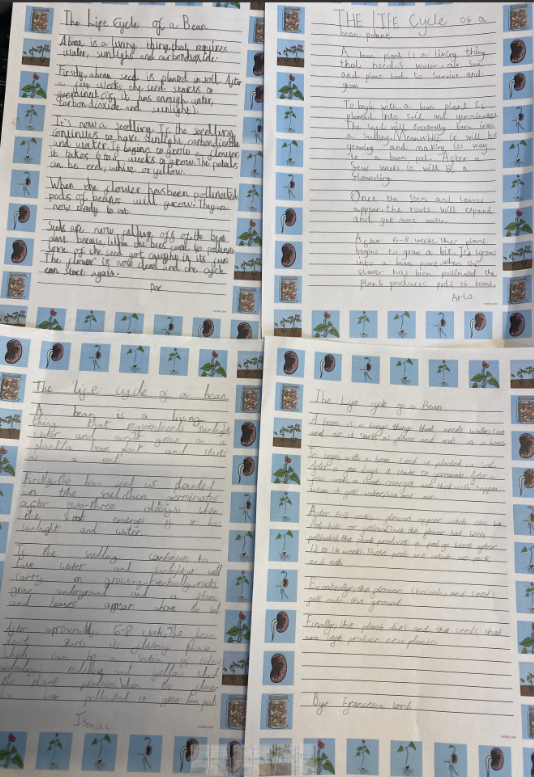 The Life Cycle of a Bean
A bean is a living thing that requires
water, sunlight and carbondioxide.
Firstly, a bean seed is planted in soil. After
a few weeks, the seed starts to
germinat (as it has enough water,
carbondioxide and sunlight).
It's now a seedling. If the seedling
continues to have sunlight, carbondioxide
and water. It begins to grow a flower
it takes 6 to 8 weeks to grow. The petals
can be red, white or yellow.
When the flower has been pollinated
pods of beans will grow. They are
now ready to eat.
Seeds are now falling off of the bean
plant because when the bees
some of the seed got caught in its fur.
The flower is now dead and the cycle
can start again.
THE LIFE Cycle of a
bean plant
A bean plant is a living thing
that needs water, air sun
and plant food to survive and
grow
To begin with a bean plant is
planted into soil and germinates
The seed will eventually turn into
a seedling. Meanwhile it will be
growing and making its way
to a bean pod. After a
few weeks it will be a
flowering.
Once the stem and leaves
appear, the roots will expand
and get more water.
After 6-8 weeks the plant
begins to grow a bit. It grows
into a bean plant, when the
flower has been pollinated the
plant produces pods of beans
Arlo
The life cycle of a bean
A bean is a living
thing that needs
water and air. It grows on a
plant/a bean plant and starts
as a
Firstly, the bean seed is planted
in the soil, then germinates
after two-three days, when
the root emerges if it has
sunlight and water.
If the seedling continues to
have water and sunlight it will
carry on growing. Eventually, roots
grow underground and a stem
and leaves appear above the soil
After aproximatly 6-8 weeks. The bean
plant starts its
which can be a
including red, and yellow
the plant produces. When the flower
has been pollinated it grow bean pods
Isaac
The Life cycle of a Bean
A bean is a living thing that needs water, sun
and air it starts as
To begin with a bean seed is planted in soil.
After a few days it starts to germinate. After a
few weeks a root emerges and that will happen
when it gets water, sun and air.
After 6-8 weeks flowers appear which can be
red, white or yellow. Once the flower has been
pollinated the plant produces a pod of beans after
12 to 14 weeks. These pods are which we pick
and eat.
Eventually, the flower shrivels and seeds
fall onto the ground.
Finally, the plant dies and the seeds that
are left produce new plants.
By